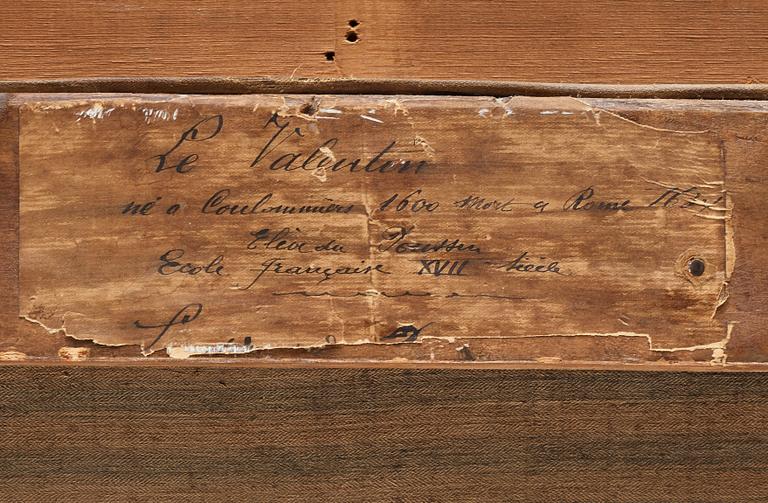 Le Valentin
né a Coulommiers 1600 mort a Rome
Elève du Poussin
Ecole française XVII Siècle